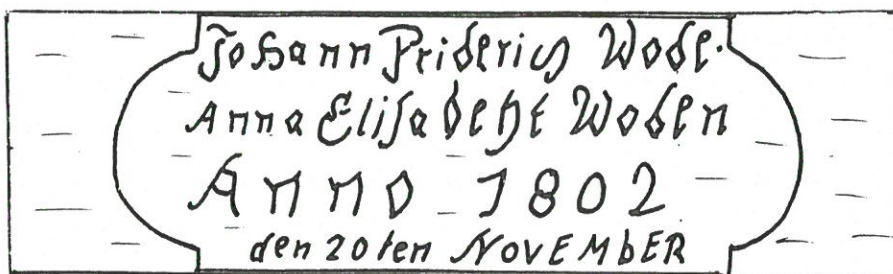 Johann Friderich Wode.
Anna Elisabeht Woden
Anno 1802
den 20ten NOVEMbER